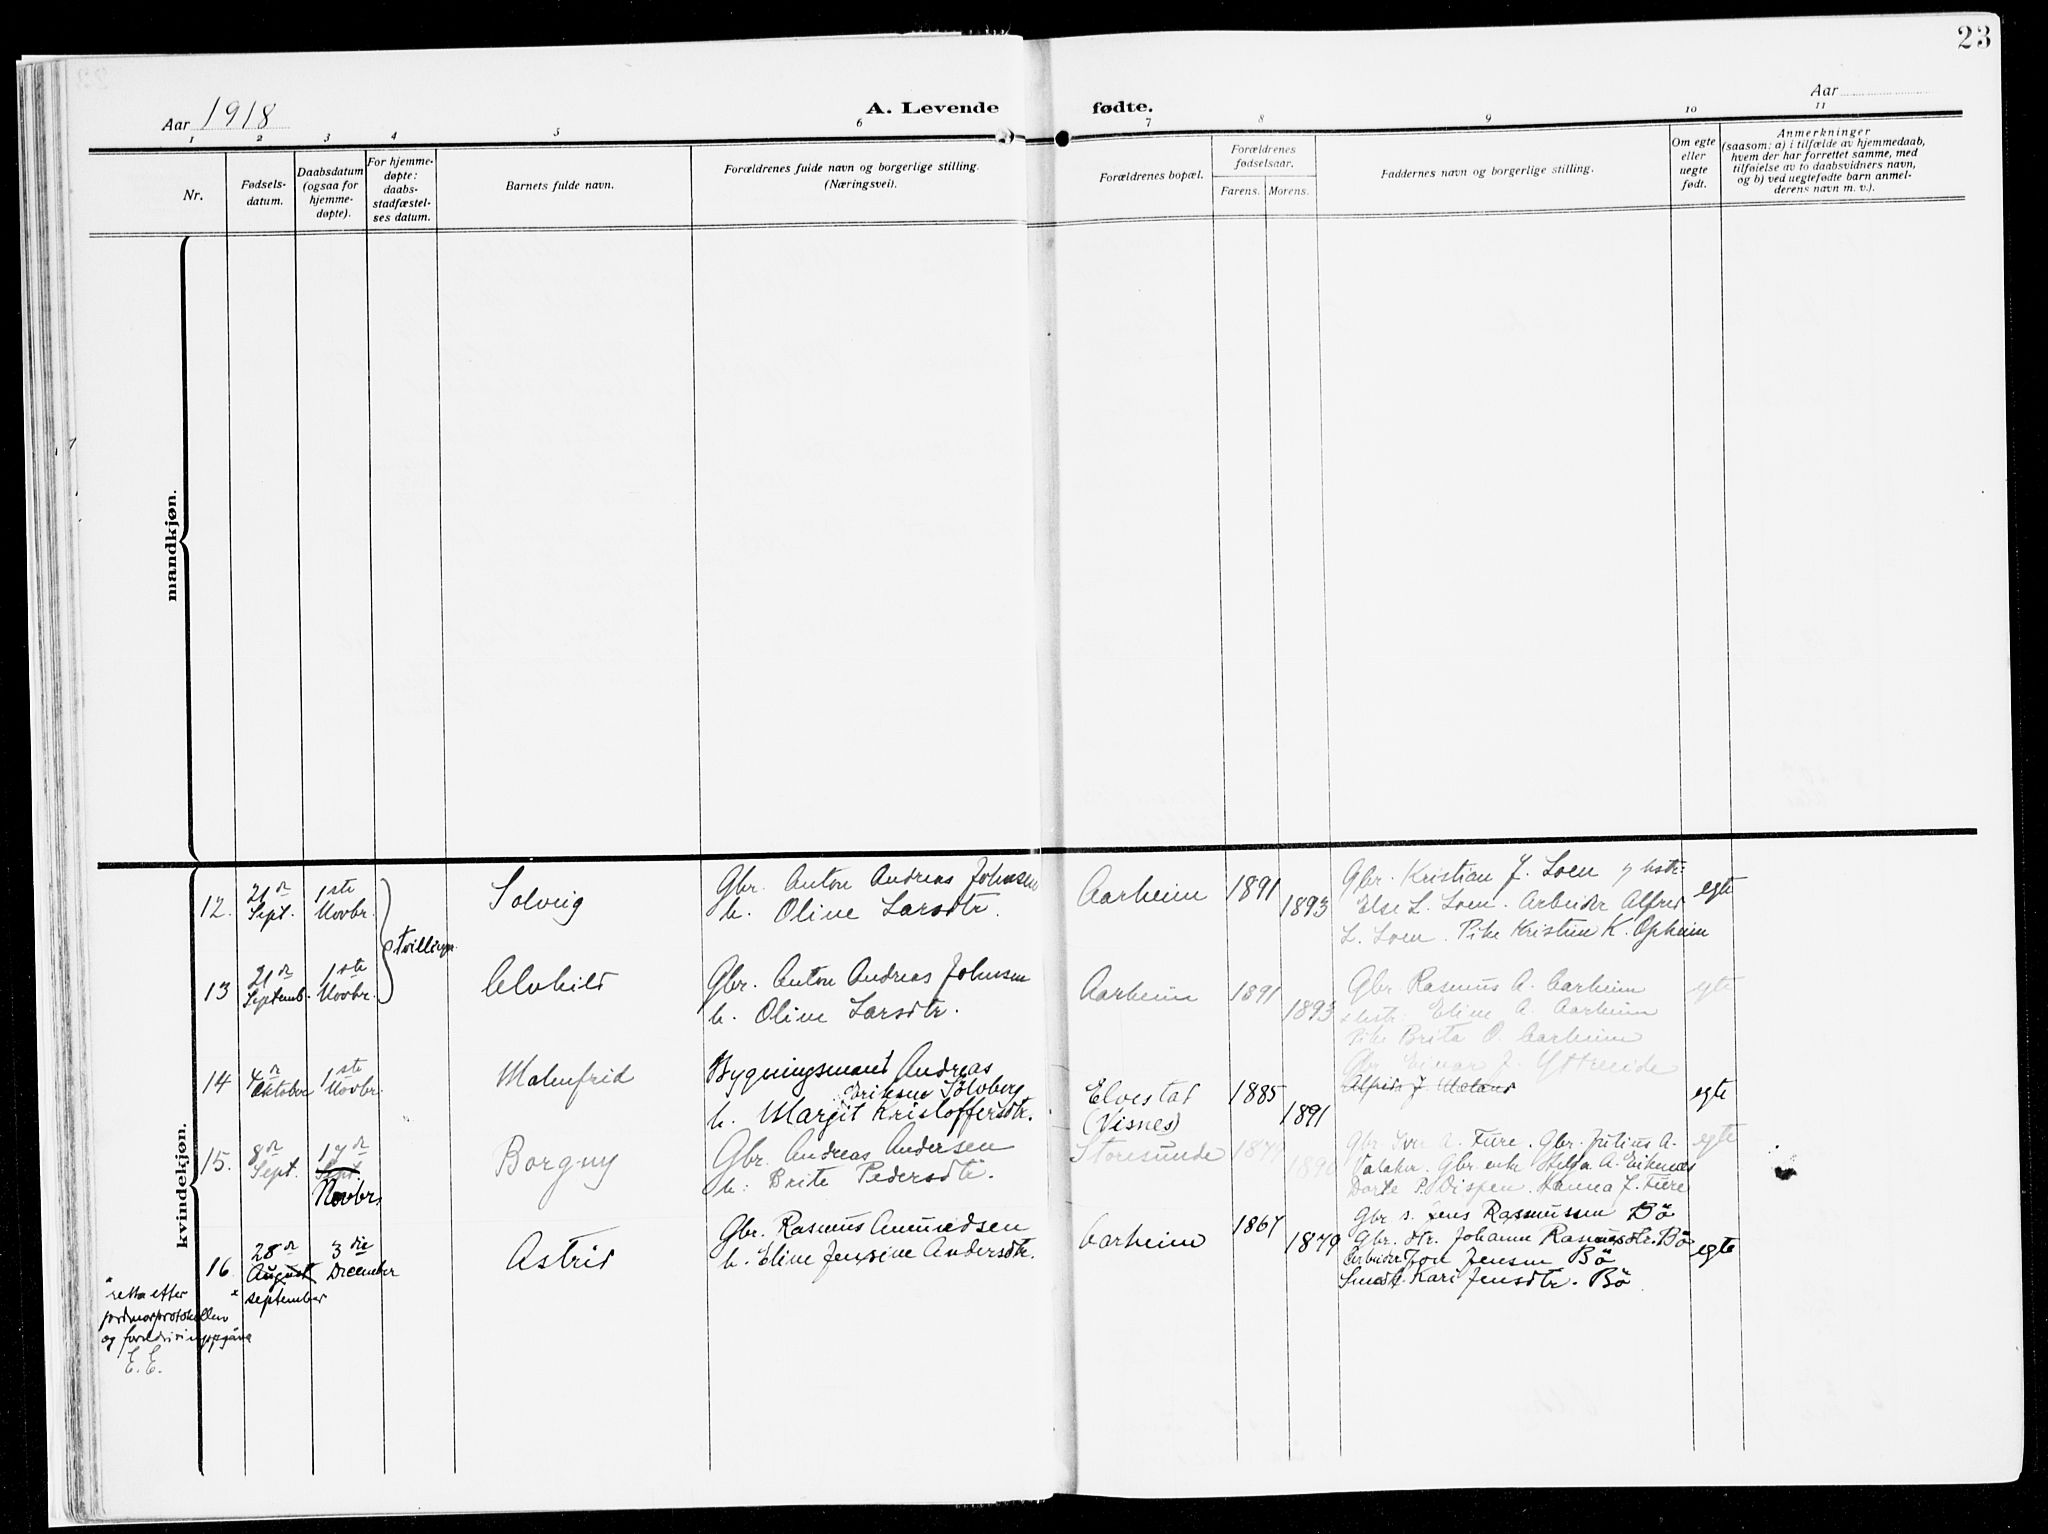 23
Aar 1918
A. Levende fødte.
Aar
1 2 3 4 5 6 7 8 9 10 11
Nr.
Fødsels-
datum.
Daabsdatum
(ogsaa for
hjemme-
døpte).
For hjemme-
døpte:
daabs-
stadfæstel-
ses datum.
Barnets fulde navn.
Forældrenes fulde navn og borgerlige stilling.
(Næringsvei).
Forældrenes bopæl.
Forældrenes
fødselsaar.
Farens. Morens.
Faddernes navn og borgerlige stilling.
Om egte
eller
uegte
født.
Anmerkninger
(saasom: a) i tilfælde av hjemmedaab,
hvem der har forrettet samme, med
tilføielse av to daabsvidners navn,
og b) ved uegtefødte barn anmel-
derens navn m. v.).
mandkjøn.
kvindekjøn.
12. 21 de Sept. 1ste Novbr. Solveig
Gbr. Anton Andreas Johnsen
h. Oline Larsdtr.
Aarheim 1891 1893
Gbr. Kristian J. Loen
Else L. Loen. Arbeider Alfred
L. Loen. Pike Kristine K. Opheim
egte
tvillinger
13 21 de Septemb. 1ste Novbr. Alvhild
Gbr. Anton Andreas Johnsen
h. Oline Larsdtr.
Aarheim 1891 1893
Gbr. Rasmus A. Aarheim
Eline A. Aarheim
Pike Brita O. Aarheim
Gbr Einar J. Ytreeide
egte
14 4 de Oktober 1ste Novbr. Malmfrid
Bygningsmand Andreas
Eriksen Sölvberg
h. Margit Kristoffersdtr.
Elvestad
(Visnes)
1885 1891
egte
15. 8 de Sept. 17 de Sept. Novbr. Borgny
Gbr. Andreas Andersen
h: Brite Pedersdtr.
Storesunde
Gbr. Iver A. Fure. Gbr. Julius A.
Gbr. enke Helga A. Eikenæs
Dorte P. Dispen. Hanna J. Fure
egte
16 28 de August september 3 die December Astrid
Gbr. Rasmus Amundsen
h. Eline Jensine Andersdtr.
Aarheim 1867 1879
Gbr. s. Jens Rasmussen Bö
Gbr. dtr. Johanne Rasmusdtr. Bö
Arbeider Jon Jensen Bö
Kari Jensdtr. Bö
egte
retta etter
jordmorprotokollen
og foreldri si uppgåve
E. E.